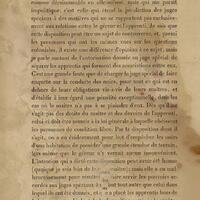 comme déraisonnable en elle-même, mais qui me paraît
impolitique, c'est celle qui étend la juridiction des juges
spéciaux à des matières qui ne se rapportent pas exclusive-
ment aux relations entre le gérant et l'apprenti. Je sais que
cette disposition peut être un sujet de controverse, et, parmi
les personnes qui ont les mêmes vues sur les questions
coloniales, il existe une différence d'opinion à ce sujet, mais
je parle surtout de l'autorisation donnée au juge spécial de
visiter les apprentis qui forment des associations entre eux.
C'est une grande faute que de charger le juge spécial de faire
enquête sur la conduite des noirs, pour tout ce qui est en
dehors de leurs obligations vis-à-vis de leurs maîtres, et
d'établir à leur égard une pénalité exceptionnelle, dans les
cas où le maître n'a pas à se plaindre d'eux. Dès qu'il ne
s'agit pas des droits du maître et des devoirs de l'apprenti,
celui-ci doit être soumis à la loi générale à laquelle obéissent
les personnes de condition libre. Par la disposition dont il
s'agit, on a eu évidemment pour but d'empêcher les noirs
d'une habitation de posséder une grande étendue de terrain,
lors même que le gérant n'y verrait aucun inconvénient.
L'intention qui a dicté cette disposition peut avoir été bonne
(quoique je sois loin de
mais elle a cer-
tainement pour
les pouvoirs ac-
cordés aux juges spéciaux
tout autre que celui
dans lequel ils ont été